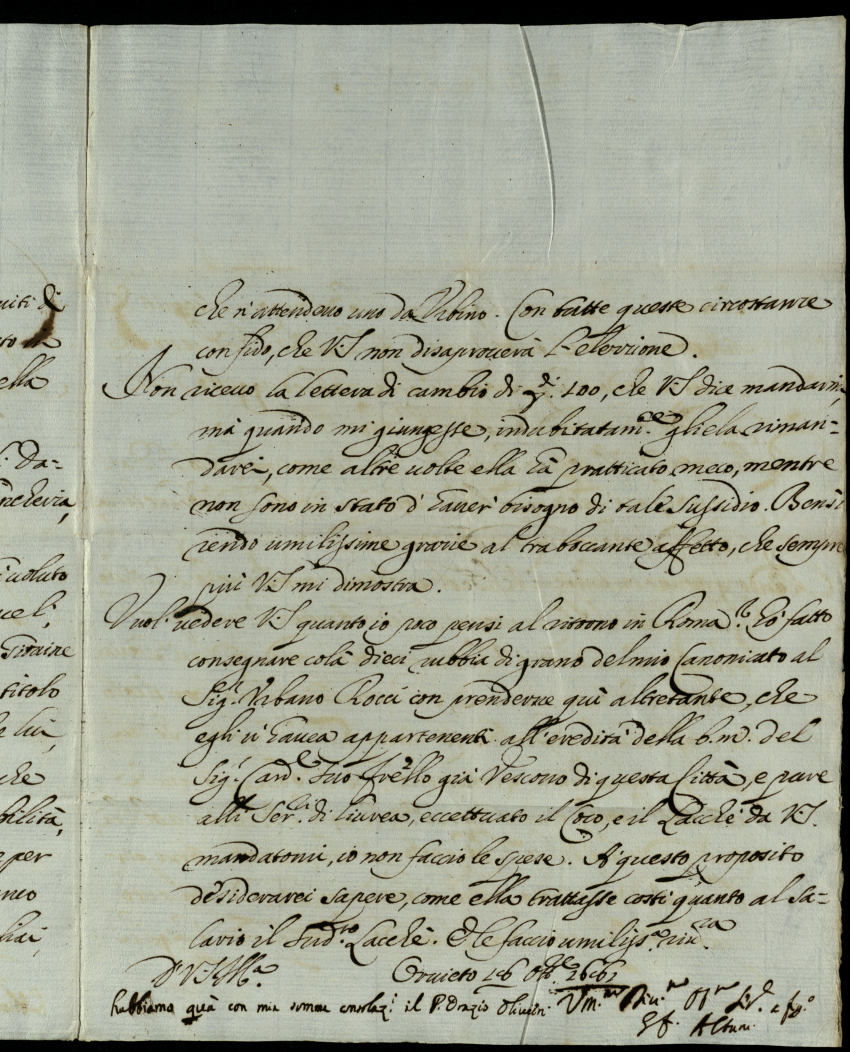 uiti di
to in
ella
da=
ncheria,
uoluto
titolo
che
bilità,
per
che n'attendeuo uno da Vrbino. Con tutte queste circostanze
confido, che V.S non disaprouerà l'elezzione.
Non riceuo la lettera di cambio di 100, che V.S dice mandarmi,
mà quando mi giungesse, indubitatam.te gliela riman=
darei, come altre uolte ella hà pratticato meco, mentre
non sono in stato d'hauer bisogno di tale sussidio. Bensì
rendo umilissime grazie al traboccante affetto, che sempre
più V.S mi dimostra.
Vuol uedere V.S quanto io poco pensi al ritorno in Roma? Hò fatto
consegnare colà dieci rubbia di grano del mio Canonicato al
Sig.r Vrbano Rocci con prenderne quì altretante, che
egli ui haueua appartenenti all'eredità della b.m. del
Sig.r Card.le suo fr̃ello già Vescouo di questa Città, e pure
alli Ser.ri di liurea, eccettuato il Coco, e il Lacchè da V.S.
mandatomi, io non faccio le spese. A' questo proposito
desiderarei sapere, come ella trattasse costì quanto al sa=
lario il sud.to Lacchè. E le faccio umiliss.a riu.za
D V.S Ill.ma Oruieto 26 Ott.e 1661
habbiamo quà con mia somma consolaz.e il P. Orazio Oliuieri. Vm.mo Diu.mo
Altieri